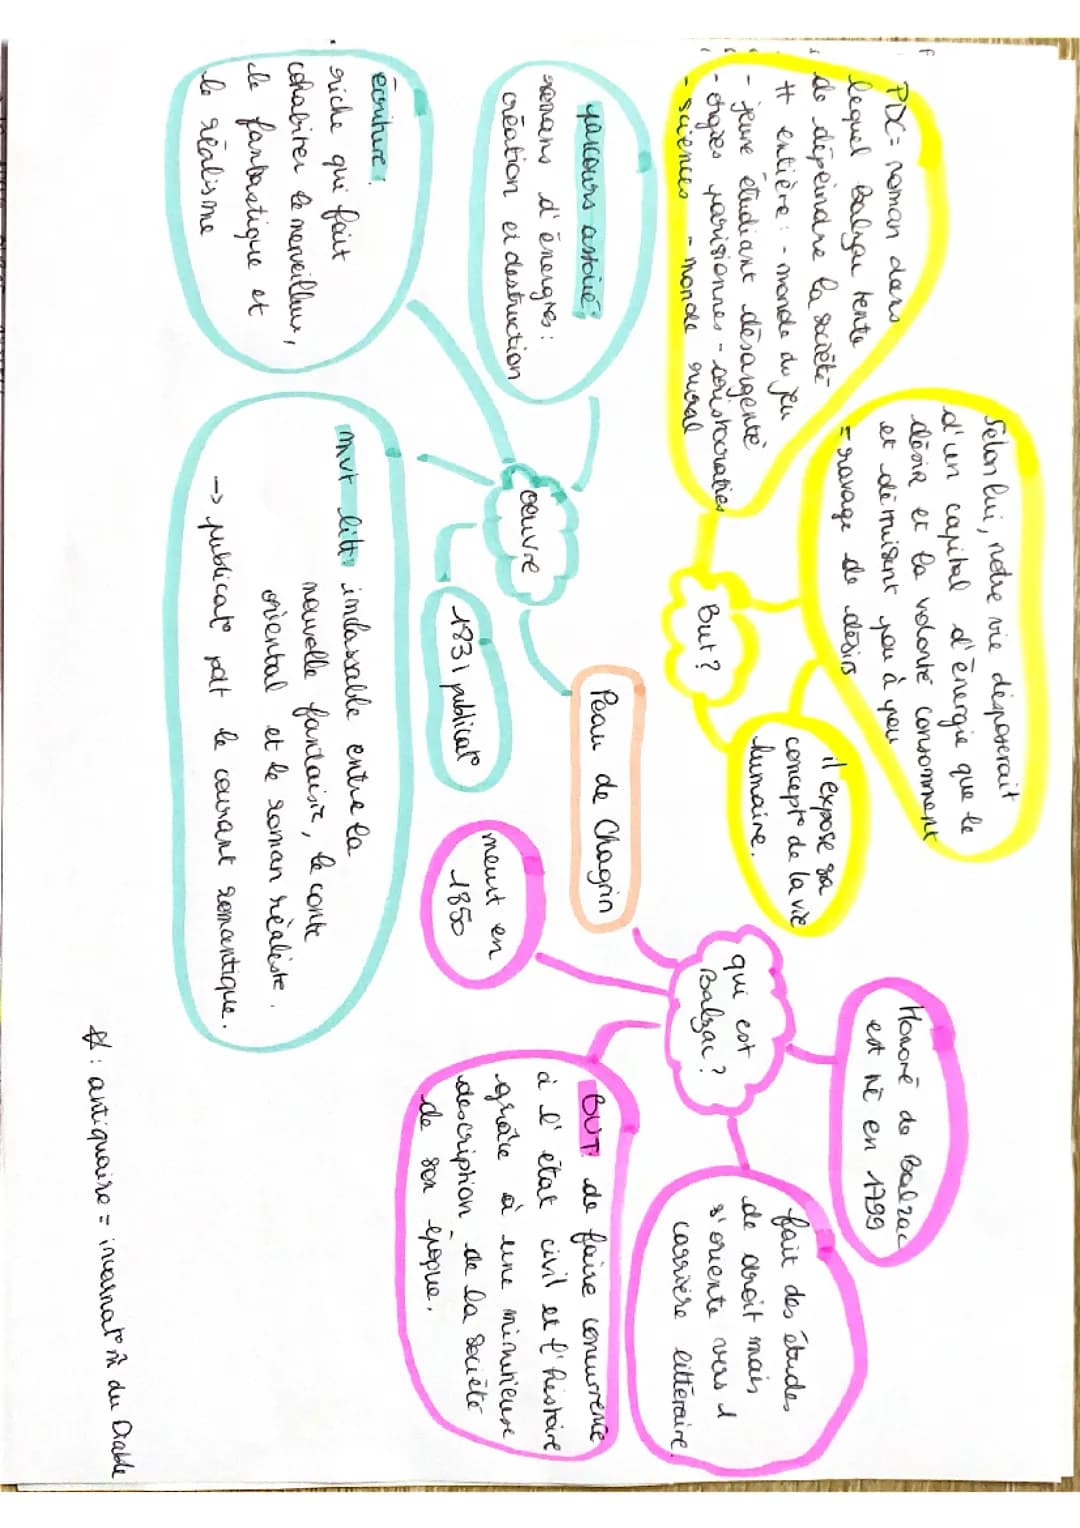 PDC = roman dans
lequel Balzac tente
de dépeindre la société
# entière : - monde du jeu
- jeune étudiant désargenté
- orgies parisiennes - aristocraties
- sciences - monde rural
Selon lui, notre vie disposerait
d'un capital d'énergie que le
désir et la volonté consomment
et détruisent peu à peu
= ravage de désirs
But ?
il expose sa
concept° de la vie
humaine.
Peau de Chagrin
parcours associé :
romans d'énergies :
création et destruction
œuvre
1831 publicat°
écriture :
riche qui fait
cohabiter le merveilleux,
le fantastique et
le réalisme
mvt litt : inclassable entre la
nouvelle fantaisie, le conte
oriental et le roman réaliste.
-> publicat° pdt le courant romantique.
qui est
Balzac ?
Honoré de Balzac
est né en 1799
fait des études
de droit mais
s'oriente vers 1
carrière littéraire
meurt en
1850
BUT : de faire concurrence
à l'état civil et l'histoire
grâce à une minutieuse
description de la société
de son époque.
: antiquaire = incarnat° m̂ du Diable